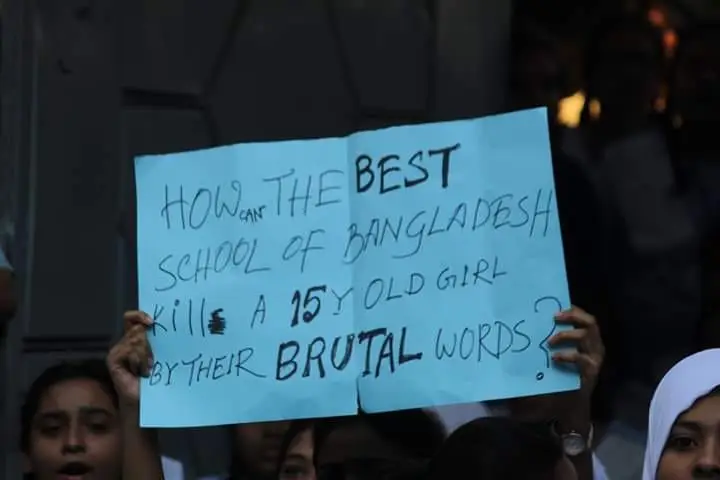 HOW CAN THE BEST
SCHOOL OF BANGLADESH
Kill A 15Y OLD GIRL
BY THEIR BRUTAL WORDS?